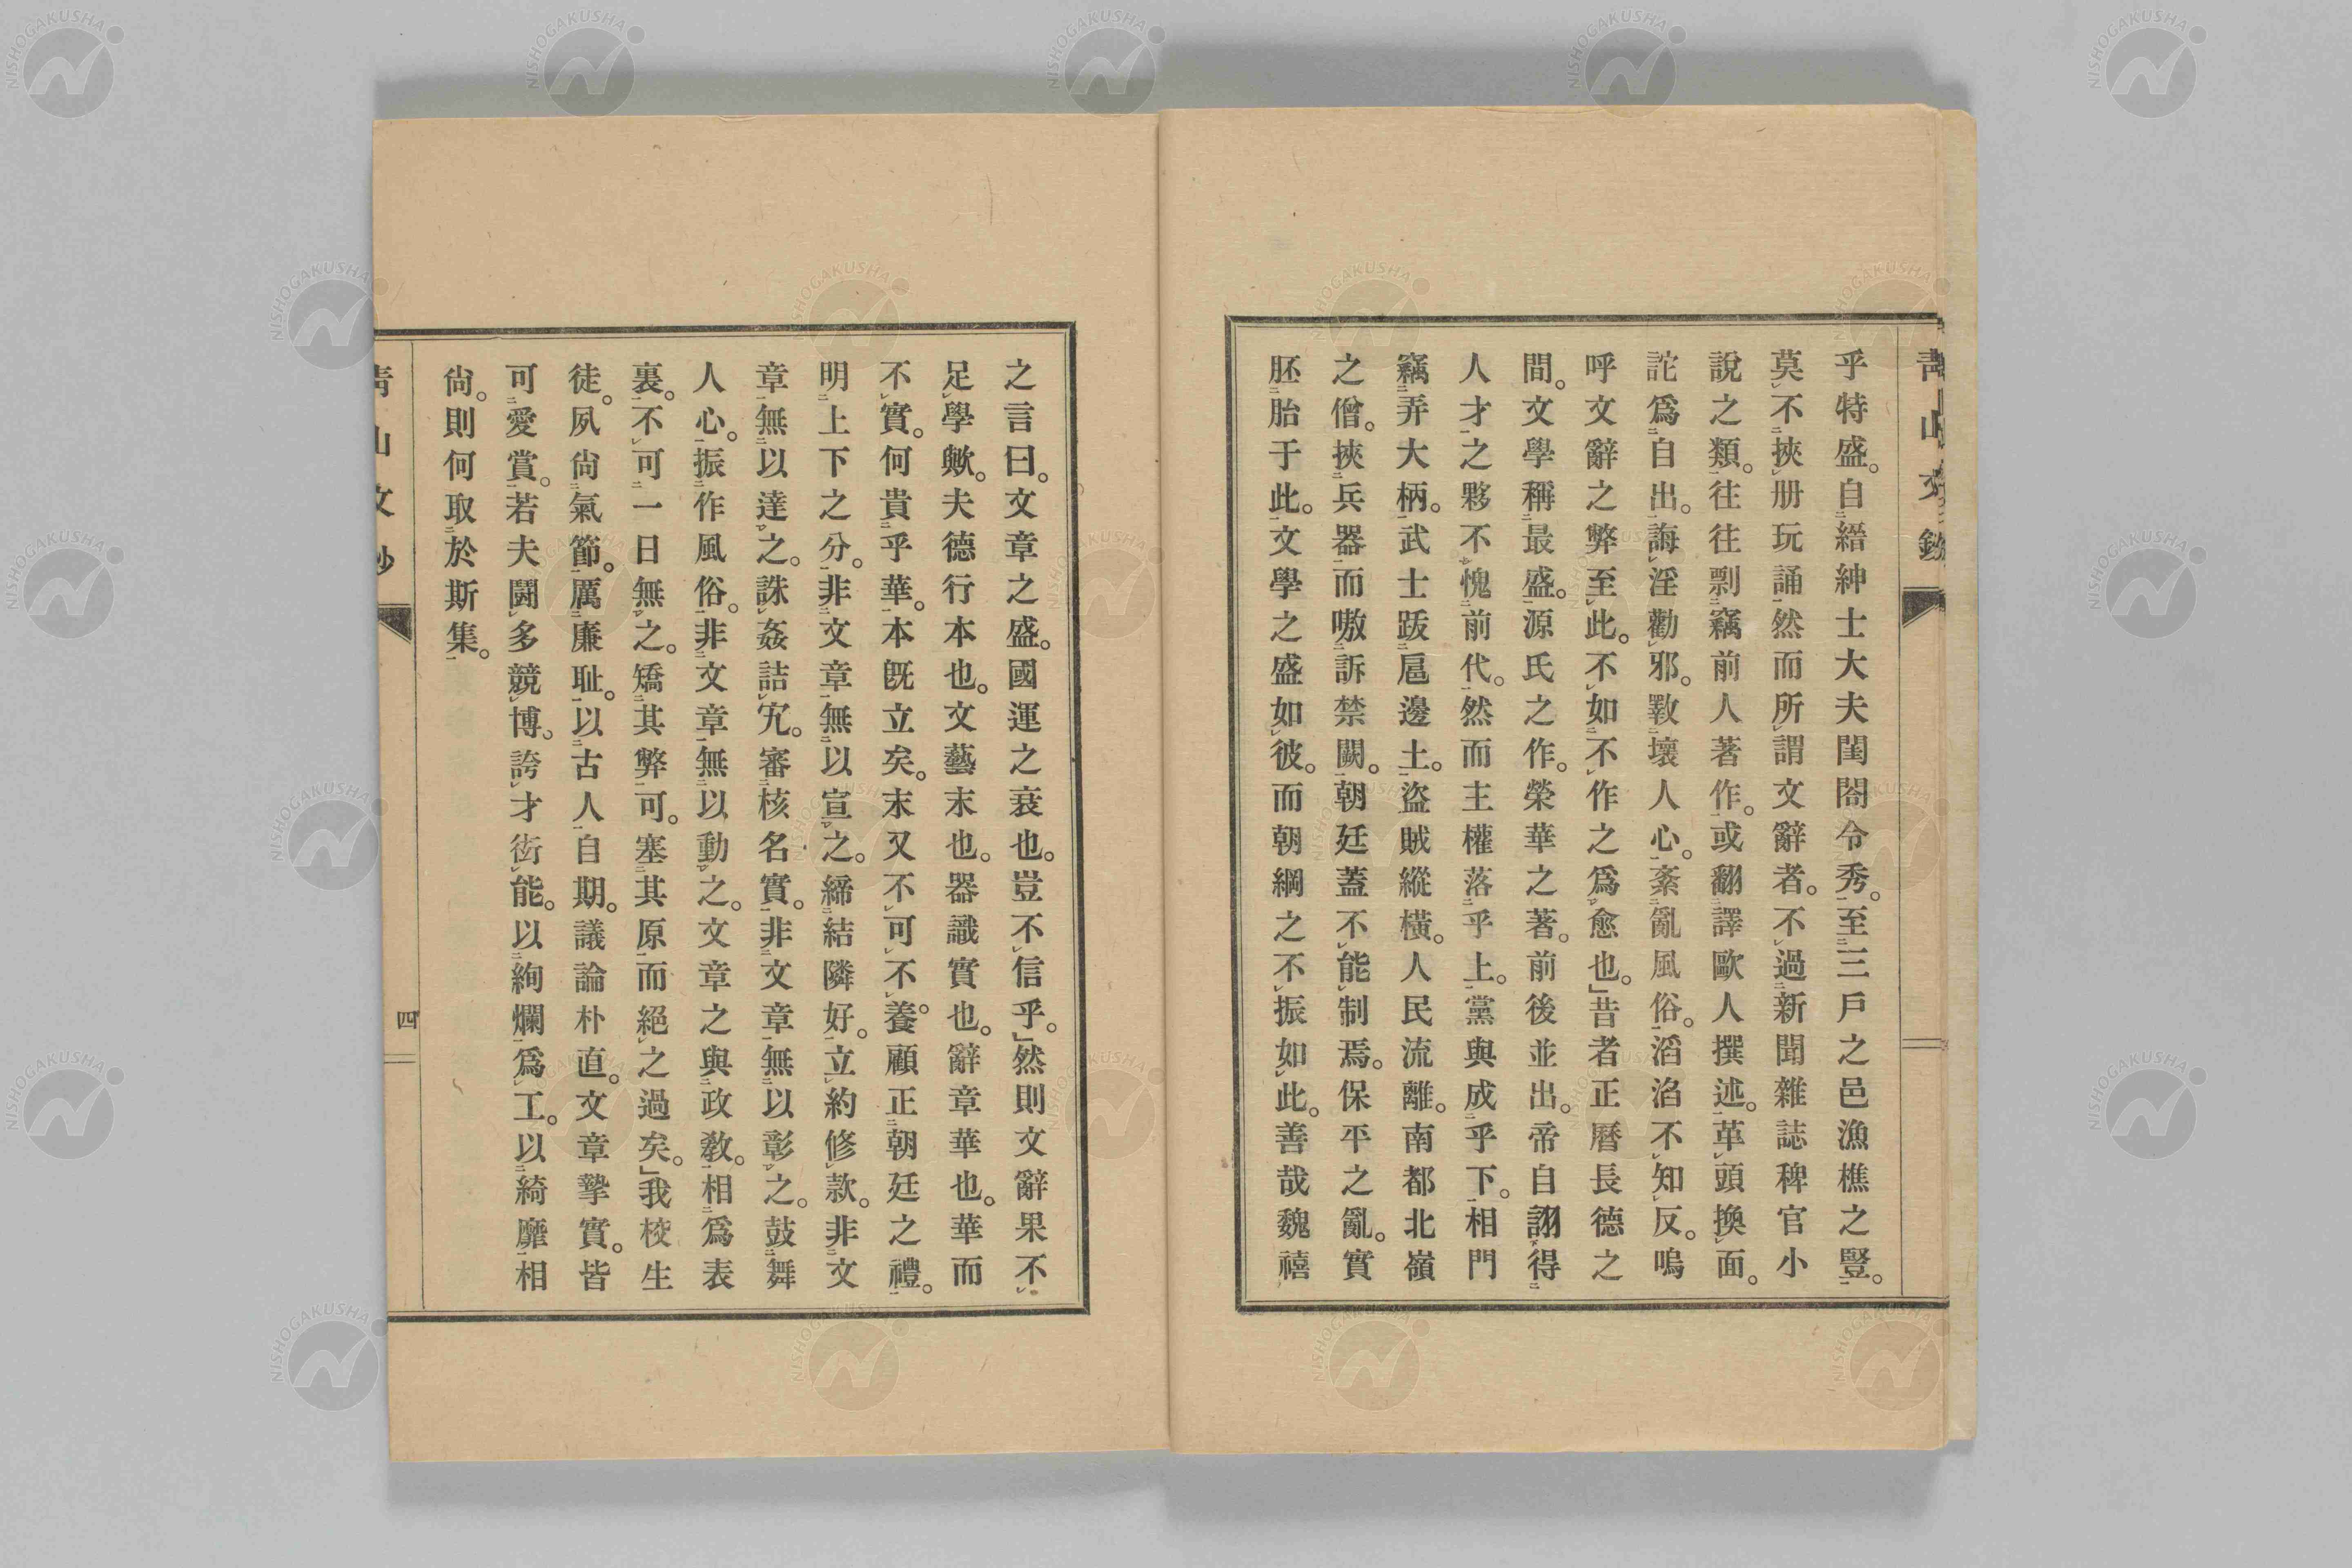 靑山文鈔
乎特盛。自縉紳士大夫閨閤令秀。至三戶之邑漁樵之豎。
莫不挾册玩誦然而所謂文辭者。不過新聞雜誌稗官小
說之類。往往剽竊前人著作。或翻譯歐人撰述。革頭換面。
詫爲自出。誨淫勸邪。斁壞人心。紊亂風俗。滔滔不知反。嗚
呼文辭之弊至此。不如不作之爲愈也。」昔者正曆長德之
間。文學稱最盛。源氏之作。榮華之著。前後並出。帝自詡得
人才之夥不愧前代。然而主權落乎上。黨與成乎下。相門
竊弄大柄。武士跋扈邊土。盜賊縱橫。人民流離。南都北嶺
之僧。挾兵器而嗷訴禁闕。朝廷蓋不能制焉。保平之亂。實
胚胎于此。文學之盛如彼。而朝綱之不振如此。善哉魏禧
之言曰。文章之盛。國運之衰也。豈不信乎。」然則文辭果不
足學歟。夫德行本也。文藝末也。器識實也。辭章華也。華而
不實。何貴乎華。本旣立矣。末又不可不養。顧正朝廷之禮。
明上下之分。非文章無以宣之。締結隣好。立約修款。非文
章無以達之。誅姦詰宄。審核名實。非文章無以彰之。鼓舞
人心。振作風俗。非文章無以動之。文章之與政敎。相爲表
裏。不可一日無之。矯其弊可。塞其原而絕之過矣。」我校生
徒。夙尙氣節。厲廉耻。以古人自期。議論朴直。文章摯實。皆
可愛賞。若夫鬪多競博。誇才衒能。以絢爛爲工。以綺靡相
尙。則何取於斯集。
靑山文鈔
四
NISHOGAKUSHA